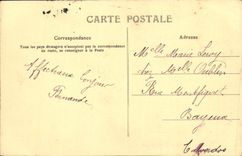 CARTE POSTALE
Correspondance
Tous les pays étrangers n'acceptent pas la correspondance
au recto, se renseigner à la Poste
Adresse
Affectueux bonjour
Fernande
Melle Marie Leroy
Melle
Rue Montfiquet
Bayeux
Calvados